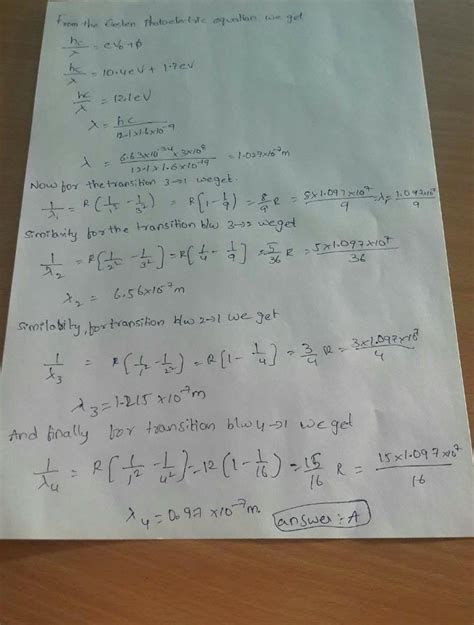 From the Einsten Photoelectric equation we get
hc/λ = eV₀+ϕ
hc/λ = 10.4eV + 1.7eV
hc/λ = 12.1eV
λ = hc/12.1×1.6×10⁻¹⁹
λ = 6.63×10⁻³⁴×3×10⁸/12.1×1.6×10⁻¹⁹ = 1.027×10⁻⁷m
Now for the transition 3→1 we get.
1/λ₁ = R(1/1² - 1/3²) = R[1-1/9) = 8/9 R = 8×1.097×10⁷/9 = λ₁=
Similarity for the transition b/w 3→2 we get
1/λ₂ = R[1/2² - 1/3²] = R[1/4 - 1/9] = 5/36 R = 5×1.097×10⁷/36
λ₂ = 6.56×10⁻⁷m
Similarity, for transition b/w 2→1 we get
1/λ₃ = R(1/1² - 1/2²) = R[1- 1/4] = 3/4 R = 3×1.097×10⁷/4
λ₃ = 1.215 ×10⁻⁷m
And finally for transition b/w 4→1 we get
1/λ₄ = R[1/1² - 1/4²] = 12(1-1/16) = 15/16 R = 15×1.097×10⁷/16
λ₄ = 0.97 ×10⁻⁷m. answer :- A